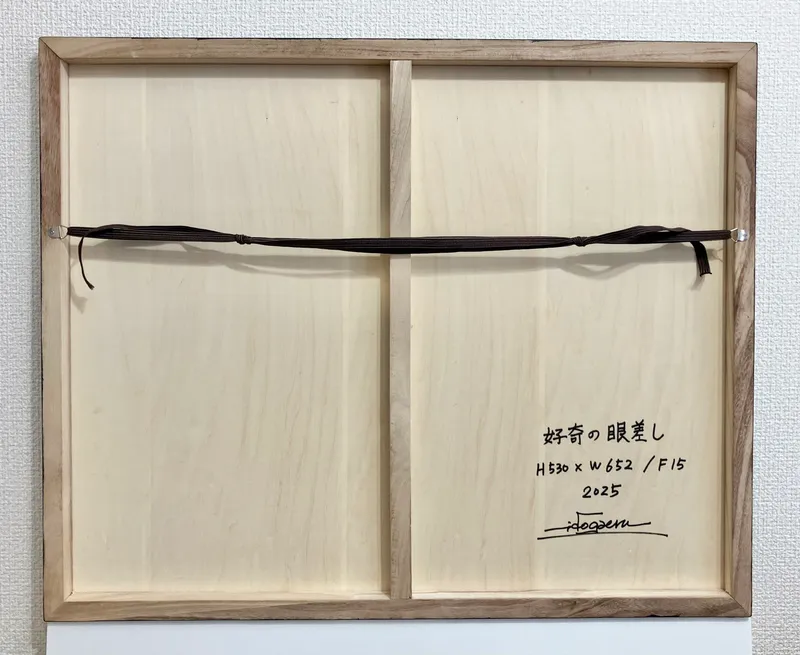 好奇の眼差し
H530 × W652 / F15
2025